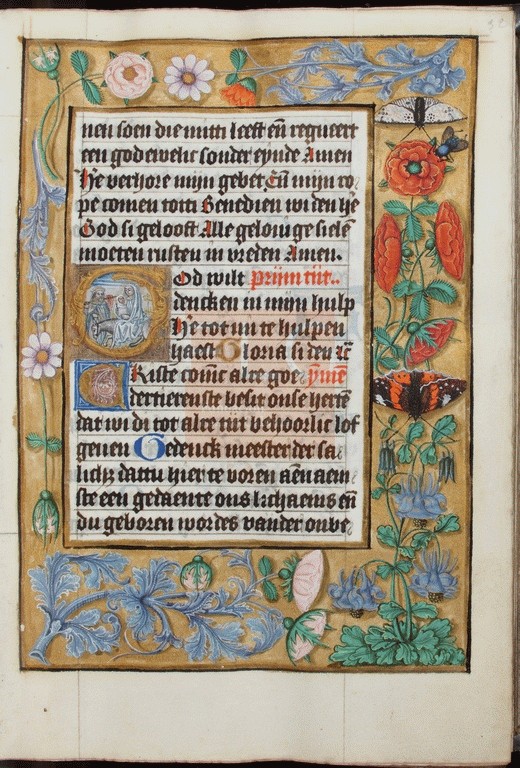 nen soen die mitti leeft eñ regneert
een god ewelic sonder eynde Amen
He verhore mijn gebet Eñ mijn ro
pe comen totti Benedien wi den he
God si gelooft Alle gelouige sielē
moeten rusten in vreden Amen.
God wilt Prijm tijt..
dencken in mijn hulp
He tot mi te hulpen
haest Gloria si den
Kriste coninc alre goe ymne
dertierenste besit onse herte
dat wi di tot alre tijt behoorlic lof
geuen Gedenck meester der sa
licheit dattu hier te voren aen aem
ste een gedaente ons lichaems eñ
du geboren wordes vander onbe